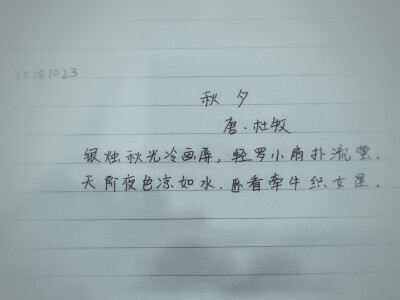 20181023
秋夕
唐·杜牧
银烛秋光冷画屏，轻罗小扇扑流萤。
天阶夜色凉如水，卧看牵牛织女星。